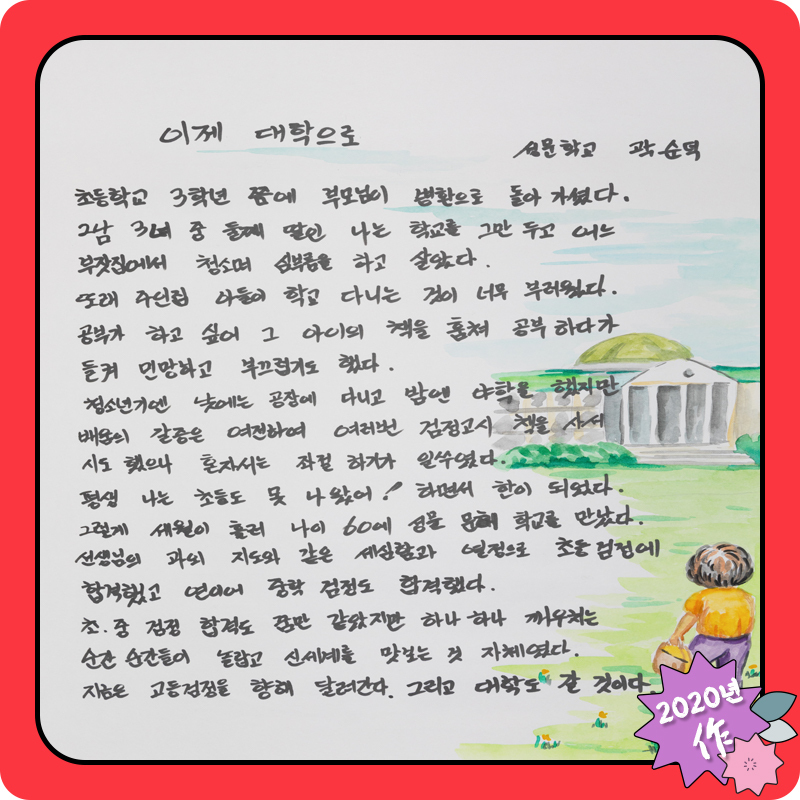 이제 대학으로
성문학교 곽순덕
초등학교 3학년 쯤에 부모님이 병환으로 돌아 가셨다.
2남 3녀 중 둘째 딸인 나는 학교를 그만 두고 어느
부잣집에서 청소며 심부름을 하고 살았다.
또래 주인집 아들이 학교 다니는 것이 너무 부러웠다.
공부가 하고 싶어 그 아이의 책을 훔쳐 공부하다가
들켜 민망하고 부끄럽기도 했다.
청소년기엔 낮에는 공장에 다니고 밤엔 야학을 했지만
배움의 갈증은 여전하여 여러번 검정고시 책을 사서
시도 했으나 혼자서는 좌절 하기가 일쑤였다.
평생 나는 초등도 못 나왔어! 하면서 한이 되었다.
그렇게 세월이 흘러 나이 60에 성문 문해 학교를 만났다.
선생님의 과외 지도와 같은 세심함과 열정으로 초등검정에
합격했고 연이어 중학 검정도 합격했다.
초.중 검정 합격도 준만 같았지만 하나 하나 깨우쳐는
순간 순간들이 놀랍고 신세계를 맛보는 것 자체였다.
지금은 고등검정을 향해 달려간다. 그리고 대학도 갈 것이다.
2020년
作